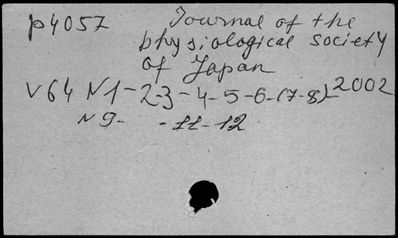 p4057 Journal of the
physiological society
of Japan
V64 N1-2-3-4-5-6-(7-8)-2002
N9- -11-12